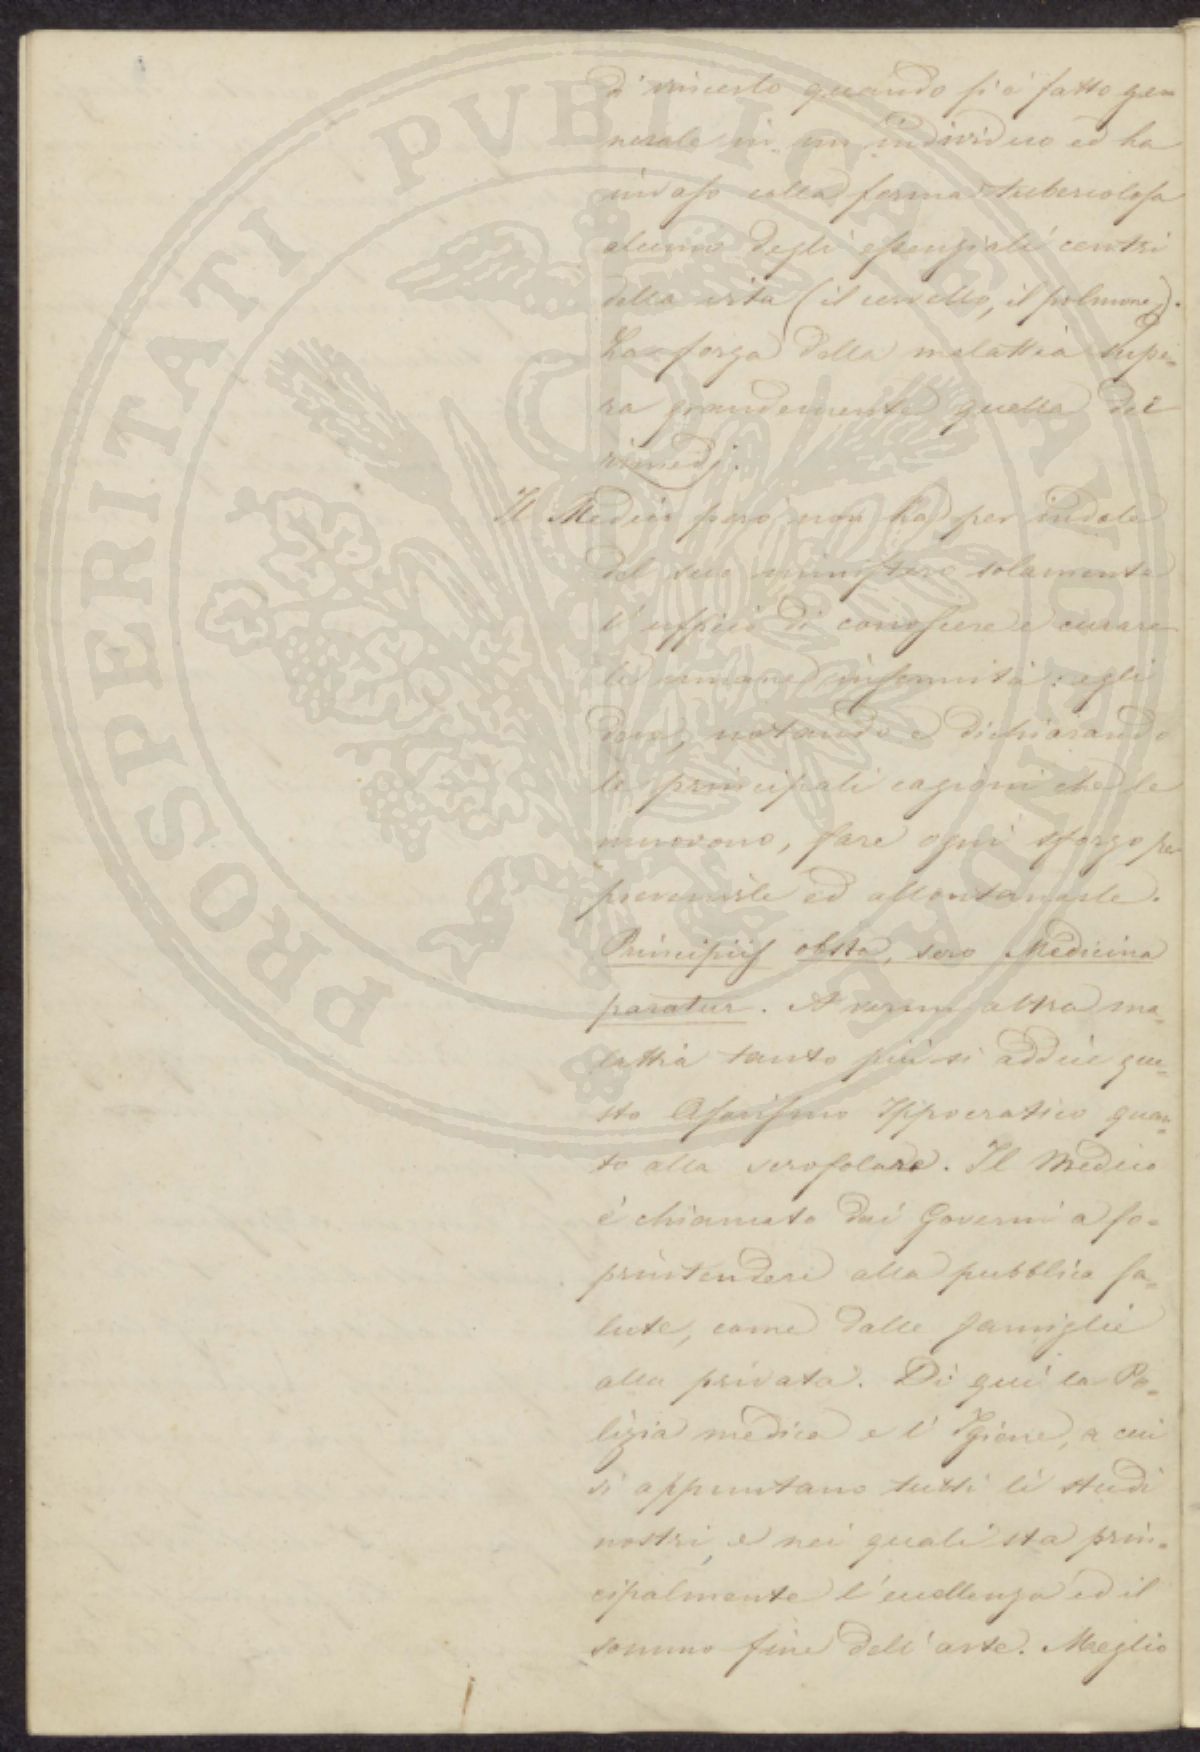 di vincerlo quando si è fatto ge=
nerale in un individuo ed ha
invaso colla forma tubercolosa
alcuno degli essenziali centri
della vita (il cervello, il polmone).
La forza della malattia supe=
ra grandemente quella dei
rimedj.
Il Medico però non ha per indole
del suo ministero solamente
l'ufficio di conoscere e curare
le umane infermità: egli
deve, notando e dichiarando
le principali cagioni che le
muovono, fare ogni sforzo per
prevenirle ed allontanarle.
Principiis obsta, sero Medicina
paratur. A niun altra ma=
lattia tanto più si addice que=
sto Aforismo Ippocratico quan=
to alla scrofolare. Il Medico
è chiamato dai Governi a so=
printendere alla pubblica sa=
lute, come dalle famiglie
alla privata. Di qui la Po=
lizia medica e l'Igiene, a cui
si appuntano tutti li studi
nostri, e nei quali sta prin=
cipalmente l'eccellenza ed il
sommo fine dell'arte. Meglio
PROSPERITATI PVBLICAE AVGENDAE